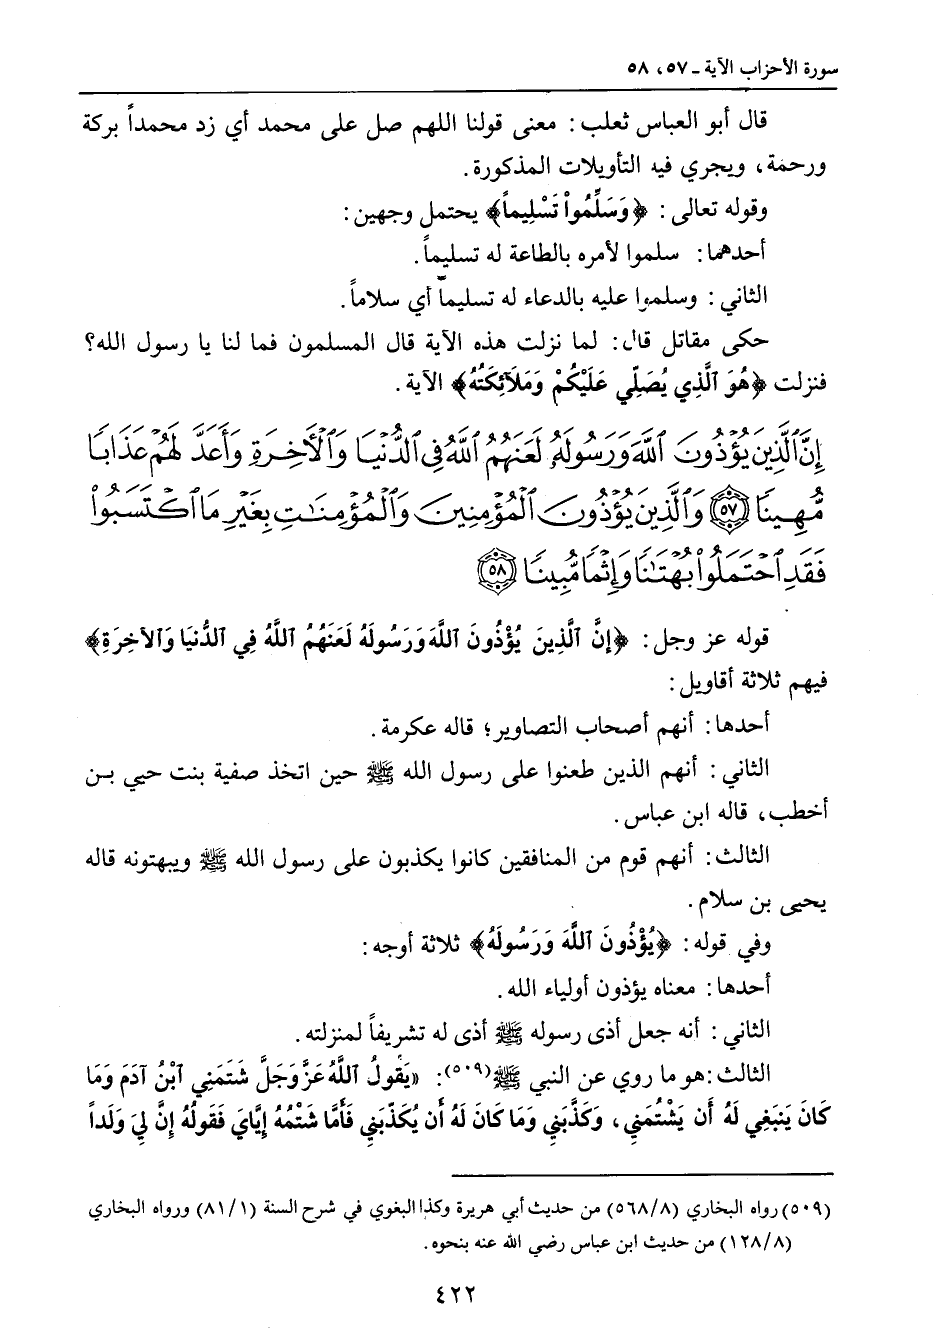 سورة الأحزاب الآية ـ ٥٧، ٥٨
قال أبو العباس ثعلب: معنى قولنا اللهم صل على محمد أي زد محمداً بركة
ورحمة، ويجري فيه التأويلات المذكورة.
وقوله تعالى: ﴿وَسَلِّمُواْ تَسْلِيماً﴾ يحتمل وجهين:
أحدهما: سلموا لأمره بالطاعة له تسليماً.
الثاني: وسلموا عليه بالدعاء له تسليماً أي سلاماً.
حكى مقاتل قال: لما نزلت هذه الآية قال المسلمون فما لنا يا رسول الله؟
فنزلت ﴿هُوَ ٱلَّذِي يُصَلِّي عَلَيْكُمْ وَمَلَآئِكَتُهُ﴾ الآية.
إِنَّ ٱلَّذِينَ يُؤْذُونَ ٱللَّهَ وَرَسُولَهُۥ لَعَنَهُمُ ٱللَّهُ فِى ٱلدُّنْيَا وَٱلْأَخِرَةِ وَأَعَدَّ لَهُمْ عَذَابًا
مُّهِينًا ٥٧ وَٱلَّذِينَ يُؤْذُونَ ٱلْمُؤْمِنِينَ وَٱلْمُؤْمِنَٰتِ بِغَيْرِ مَا ٱكْتَسَبُوا۟
فَقَدِ ٱحْتَمَلُوا۟ بُهْتَٰنًا وَإِثْمًا مُّبِينًا ٥٨
قوله عز وجل: ﴿إِنَّ ٱلَّذِينَ يُؤْذُونَ ٱللَّهَ وَرَسُولَهُ لَعَنَهُمُ ٱللَّهُ فِي ٱلدُّنْيَا وَٱلآخِرَةِ﴾
فيهم ثلاثة أقاويل:
أحدها: أنهم أصحاب التصاوير؛ قاله عكرمة.
الثاني: أنهم الذين طعنوا على رسول الله ﷺ حين اتخذ صفية بنت حيي بن
أخطب، قاله ابن عباس.
الثالث: أنهم قوم من المنافقين كانوا يكذبون على رسول الله ﷺ ويبهتونه قاله
يحيى بن سلام.
وفي قوله: ﴿يُؤْذُونَ ٱللَّهَ وَرَسُولَهُ﴾ ثلاثة أوجه:
أحدها: معناه يؤذون أولياء الله.
الثاني: أنه جعل أذى رسوله ﷺ أذى له تشريفاً لمنزلته.
الثالث: هو ما روي عن النبي ﷺ(٥٠٩): «يَقُولُ ٱللَّهُ عَزَّ وَجَلَّ شَتَمَنِي ٱبْنُ آدَمَ وَمَا
كَانَ يَنبَغِي لَهُ أَن يَشْتُمَنِي، وَكَذَّبَنِي وَمَا كَانَ لَهُ أَن يُكَذِّبَنِي فَأَمَّا شَتْمُهُ إِيَّايَ فَقَولُهُ إِنَّ لِيَ وَلَداً
(٥٠٩) رواه البخاري (٥٦٨/٨) من حديث أبي هريرة وكذا البغوي في شرح السنة (٨١/١) ورواه البخاري
(١٢٨/٨) من حديث ابن عباس رضي الله عنه بنحوه.
٤٢٢